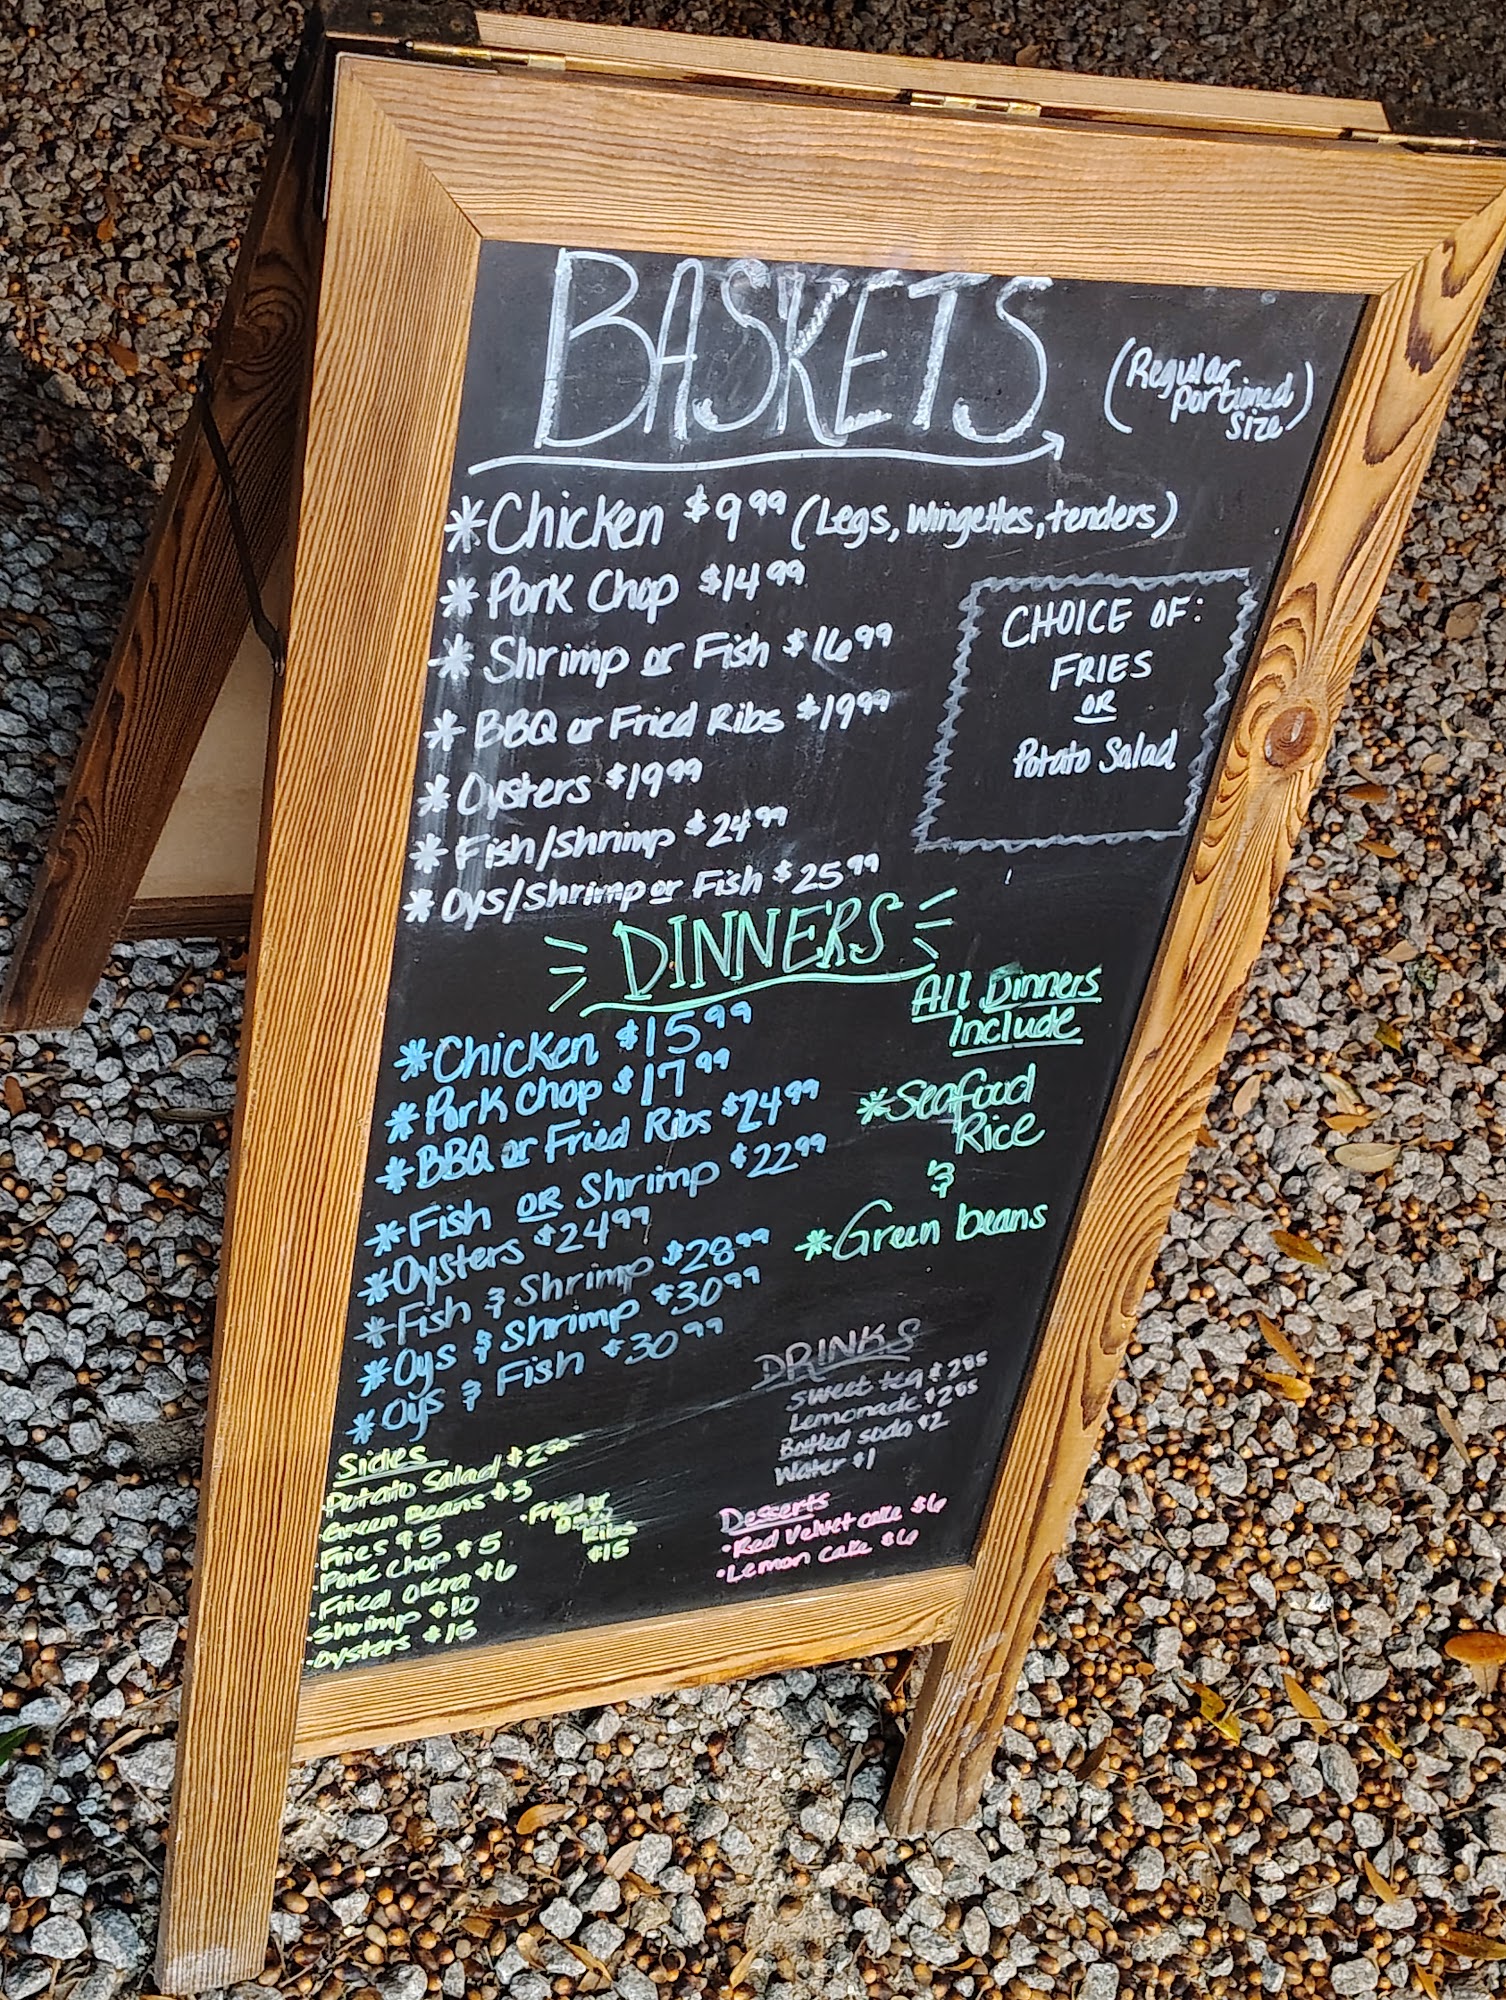 BASKETS
(Regular
portioned
size)
*Chicken $9.99 (Legs, Wingettes, tenders)
*Pork Chop $14.99
*Shrimp or Fish $16.99
*BBQ or Fried Ribs $19.99
*Oysters $19.99
*Fish/Shrimp $24.99
*Oys/Shrimp or Fish $25.99
CHOICE OF:
FRIES
OR
Potato Salad
DINNERS
*Chicken $15.99
*Pork Chop $17.99
*BBQ or Fried Ribs $24.99
*Fish OR Shrimp $22.99
*Oysters $24.99
*Fish & Shrimp $28.99
*Oys & Shrimp $30.99
*Oys & Fish $30.99
All Dinners
Include
*Seafood
Rice
&
*Green beans
Sides
·Potato Salad $2.50
·Green Beans $3
·Fries $5
·Pork Chop $5
·Fried Okra $6
·Shrimp $10
·Oysters $15
·Fried or
Ribs
$15
DRINKS
Sweet tea
Lemonade
Bottled soda $2
Water $1
Desserts
·Red Velvet cake $6
·Lemon cake $6